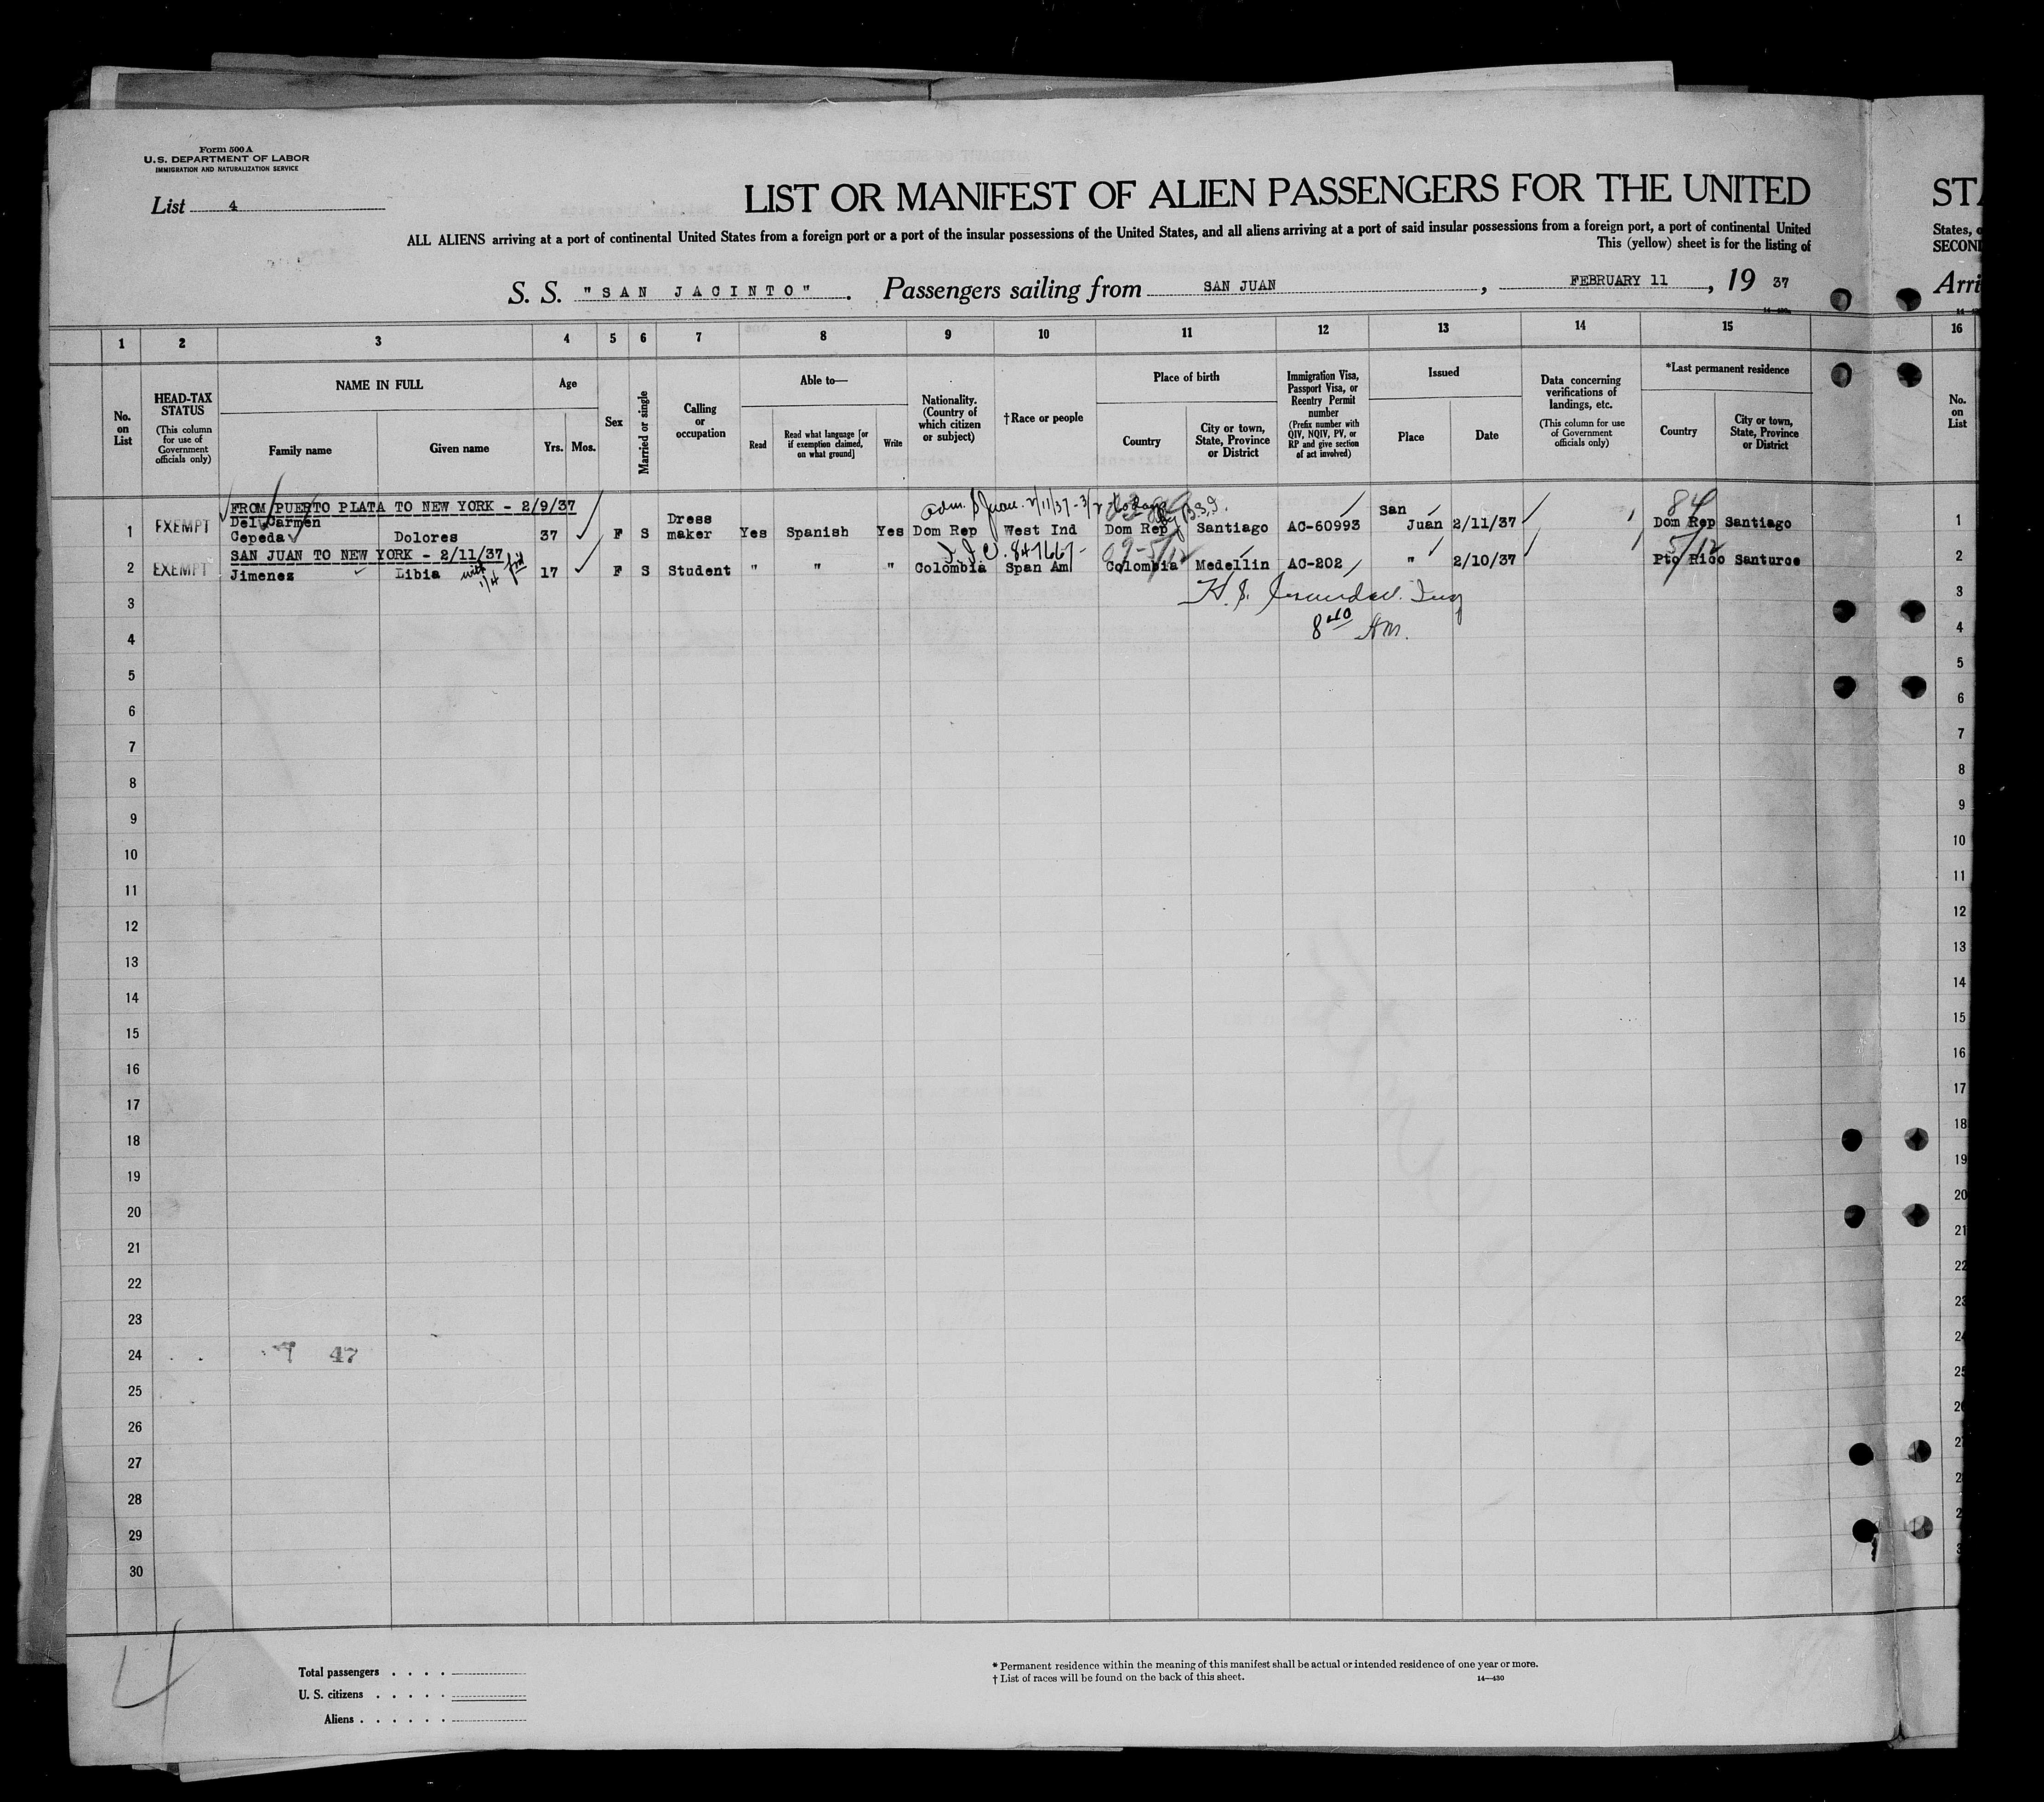 Form 500 A
U.S. DEPARTMENT OF LABOR
IMMIGRATION AND NATURALIZATION SERVICE
List 4
LIST OR MANIFEST OF ALIEN PASSENGERS FOR THE UNITED
STA
ALL ALIENS arriving at a port of continental United States from a foreign port or a port of the insular possessions of the United States, and all aliens arriving at a port of said insular possessions from a foreign port, a port of continental United
States, o
This (yellow) sheet is for the listing of
SECOND
S. S. "SAN JACINTO". Passengers sailing from SAN JUAN, FEBRUARY 11, 19 37
Arri
1 2 3 4 5 6 7 8 9 10 11 12 13 14 15 16
No. on List
HEAD-TAX STATUS
(This column for use of Government officials only)
NAME IN FULL
Family name
Given name
Age
Yrs. Mos.
Sex
Married or single
Calling or occupation
Able to—
Read
Read what language [or if exemption claimed, on what ground]
Write
Nationality. (Country of which citizen or subject)
†Race or people
Place of birth
Country
City or town, State, Province or District
Immigration Visa, Passport Visa, or Reentry Permit number
(Prefix number with QIV, NQIV, PV, or RP and give section of act involved)
Issued
Place
Date
Data concerning verifications of landings, etc.
(This column for use of Government officials only)
*Last permanent residence
Country
City or town, State, Province or District
No. on List
FROM PUERTO PLATA TO NEW YORK - 2/9/37
84
1 EXEMPT Del Carmen Cepeda Dolores 37 F S Dress maker Yes Spanish Yes Dom Rep West Ind Dom Rep Santiago AC-60993 San Juan 2/11/37 Dom Rep Santiago 1
SAN JUAN TO NEW YORK - 2/11/37
5/12
2 EXEMPT Jimenez Libia 17 F S Student " " " Colombia Span Am Colombia Medellin AC-202 " 2/10/37 Pto Rico Santurce 2
3 3
4 8 40 Am. 4
5 5
6 6
7 7
8 8
9 9
10 10
11 11
12 12
13 13
14 14
15 15
16 16
17 17
18 18
19 19
20 20
21 21
22 22
23 23
24 47
25 25
26
27
28
29
30
4
Total passengers . . . .
U. S. citizens . . . . .
Aliens . . . . . .
* Permanent residence within the meaning of this manifest shall be actual or intended residence of one year or more.
† List of races will be found on the back of this sheet.
14—430